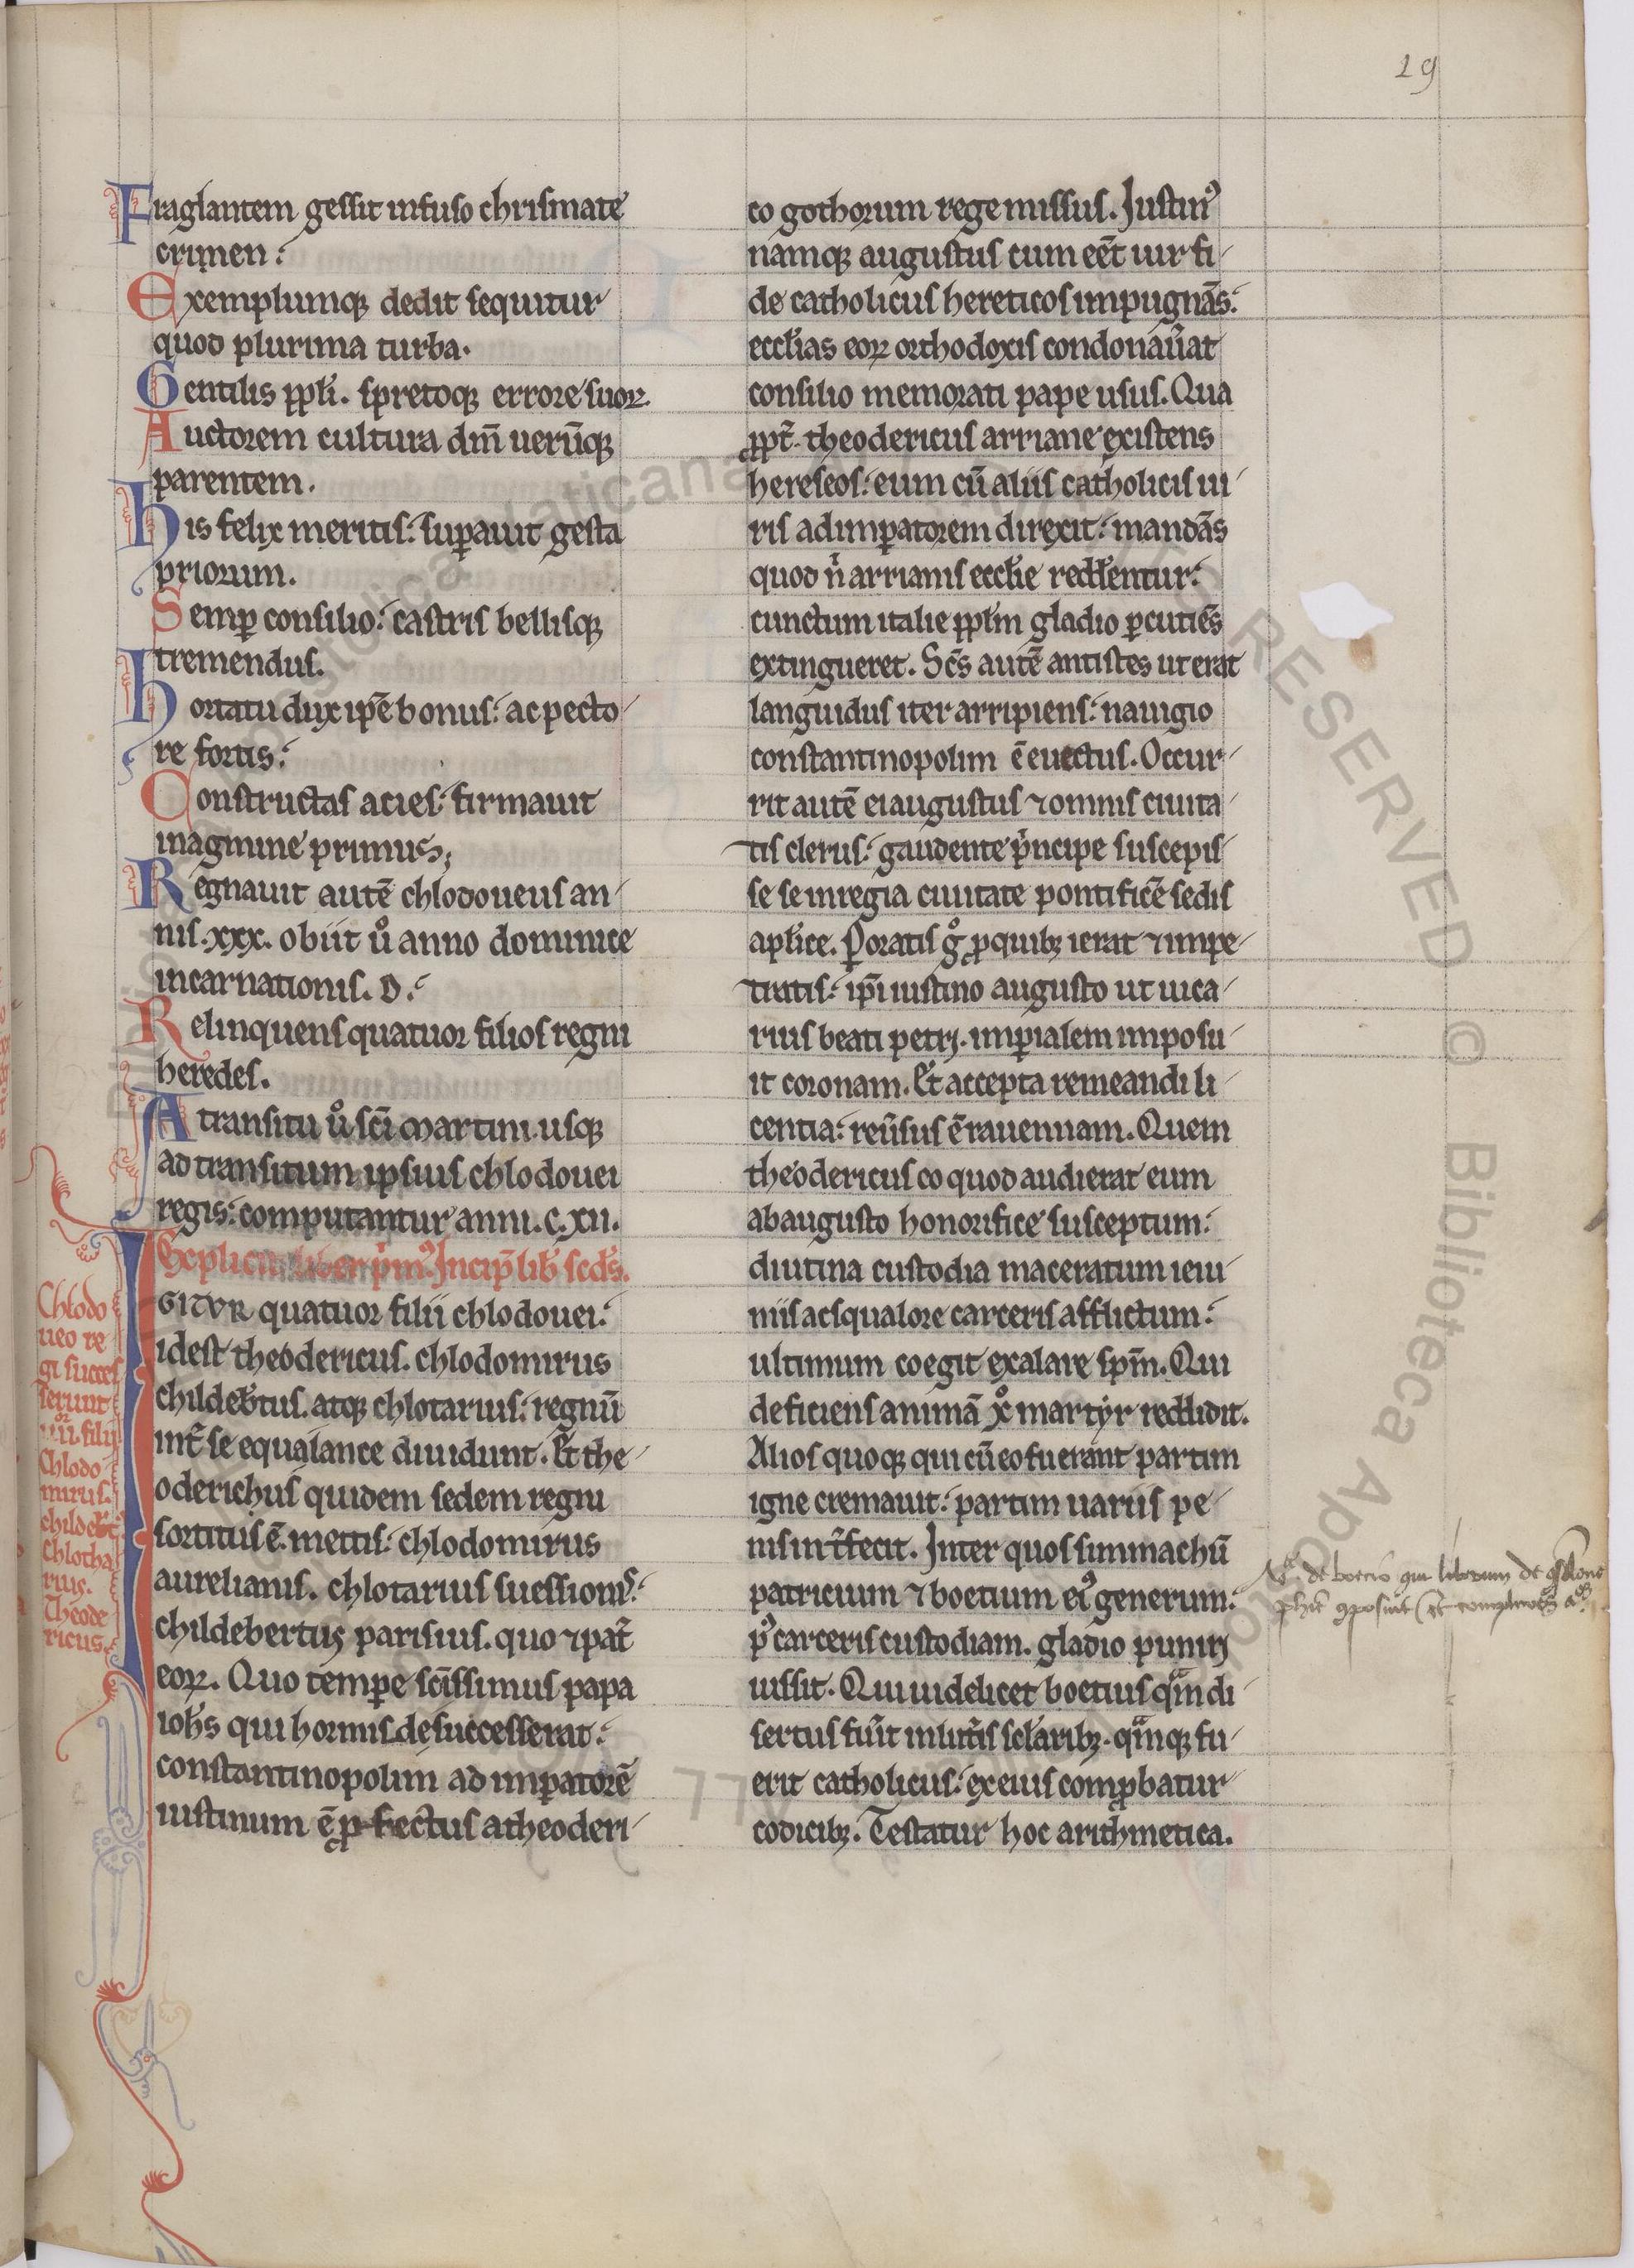 19
Fraglantem gessit infuso chrismate
crimen:
Exemplumq; dedit sequitur
quod plurima turba.
Gentilis ppłi. spretoq; errore suoꝝ.
Auctorem cultura dm̄ uerūq;
parentem.
His felix meritis: suꝑauit gesta
priorum.
Semꝑ consilio: castris bellisq;
tremendus.
Hortatu dux ip̄e bonus: ac pecto
re fortis:
Constructas acies: firmauit
inagmine primus;
Regnauit autē chlodoueus an
nis .xxx. obiit ů anno dominice
incarnationis. D.
Relinquens quatuor filios regni
heredes.
A transitu ů sc̄i martini usq;
ad transitum ipsius chlodouei
regis: computantur anni .c.xii.
Explicit liber p̄m᷒. Incip̄ lib̄ scd̄s.
IGITVR quatuor filii chlodouei:
idest theodericus. chlodomirus
childeb̄tus. atq; chlotarius: regnū
int̄ se equa lance diuidunt. Et the
oderichus quidem sedem regni
sortitus ē. mettis: chlodomirus
aurelianis. chlotarius suessionis:
childebertus parisius. quo ⁊ pat̄
eoꝝ. Quo temꝑe sc̄issimus papa
ioh̄s qui hormisde successerat:
constantinopolim ad imꝑatorē
iustinum ē ꝓfectus a theoderi
Chlodo
ueo re
gi succes
serunt
iiii.or filij
Chlodo
mirus.
childeb̄t
Chlotha
rius.
Theode
ricus.
co gothorum rege missus. Justin᷒
namq; augustus cum eēt uir fi
de catholicus hereticos impugnās:
eccłias eoꝝ orthodoxis condonau̾at
consilio memorati pape usus. Qua
ꝓpt̄. theodericus arriane existens
hereseos: eum cū aliis catholicis ui
ris ad imꝑatorem direxit: mandās
quod n̄ arrianis eccłie redd̄entur:
cunctum italie ppłm gladio ꝑcutiēs
extingueret. Sc̄s autē antistes ut erat
languidus iter arripiens: nauigio
constantinopolim ē euectus. Occur
rit autē ei augustus ⁊ omnis ciuita
tis clerus: gaudente p̄ncipe suscepis
se se in regia ciuitate pontificē sedis
aplīce. Ꝑoratis g̊ ꝓ quib; ierat ⁊ impe
tratis: ip̄i iustino augusto ut uica
rius beati petrj. imꝑialem imposu
it coronam. Et accepta remeandi li
centia: reu̾sus ē rauennam. Quem
theodericus eo quod audierat eum
ab augusto honorifice susceptum:
diutina custodia maceratum ieiu
niis ac squalore carceris afflictum:
ultimum coegit exalare spm̄. Qui
deficiens animā xp̊ martyr reddidit.
Alios quoq; qui cū eo fuerant partim
igne cremauit: partim uariis pe
nis int̄fecit. Inter quos simmachū
patricium ⁊ boetium ei᷒ generum:
p᷒ carceris custodiam. gladio punirj
iussit. Qui uidelicet boetius qm̄ di
sertus fu̾it in litt̄is scłarib;. qm̄q; fu
erit catholicus: ex eius comꝓbatur
codicib;. Testatur hoc arithmetica.
de boecio qui librum de